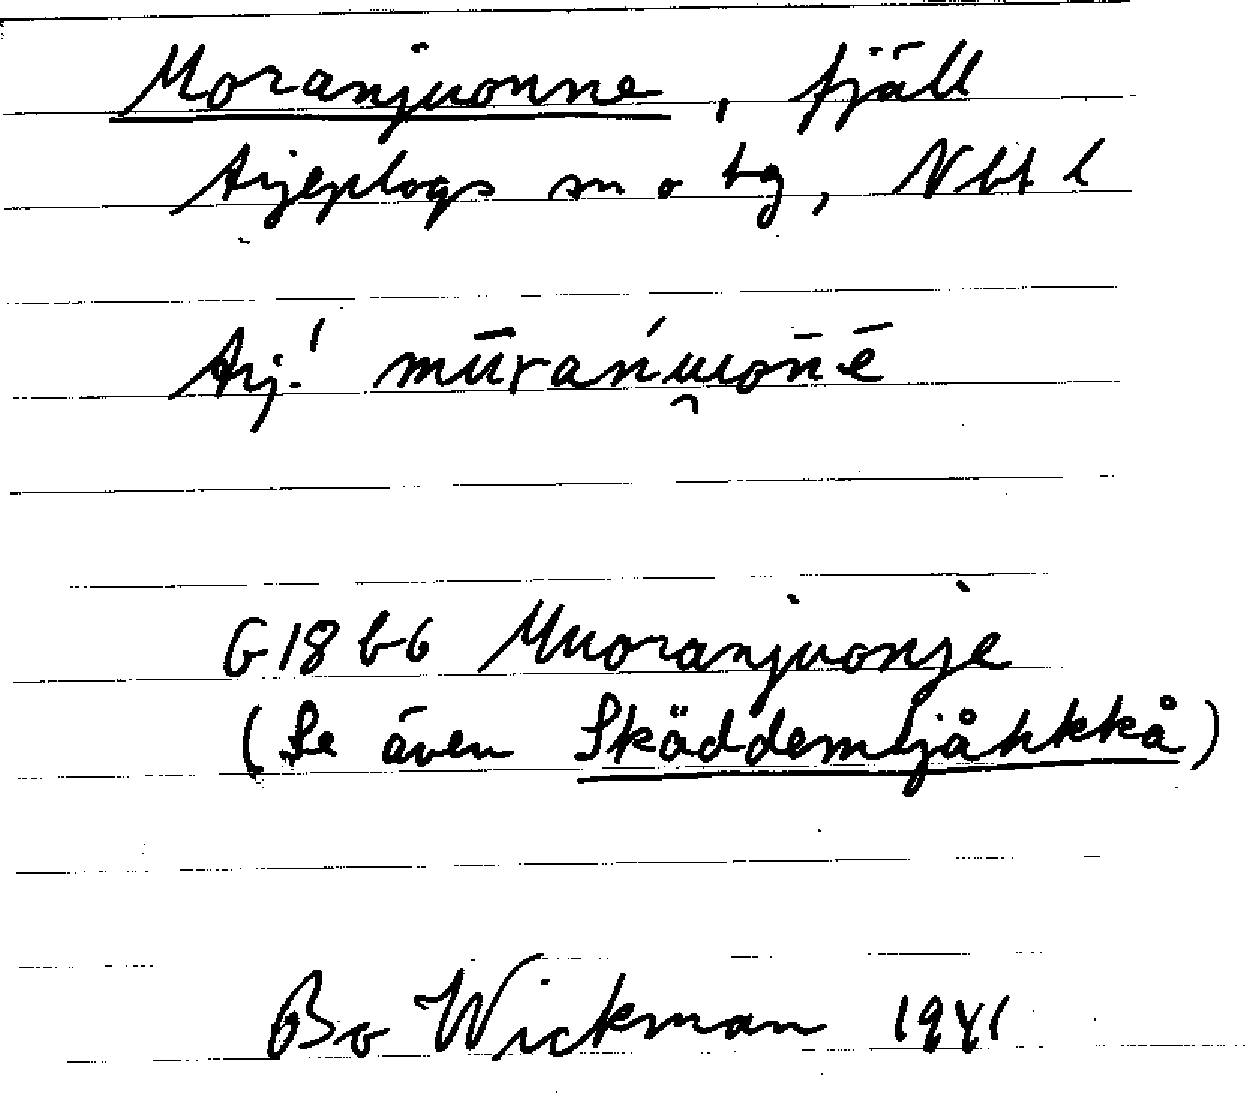 Moranjuonne, fjäll
Arjeplogs sn o tg, Nbt l
Arj.! mūrańu̯on̄ē
G18 b6 Muoranjuonje
(Se även Skäddemjåhkkå)
Bo Wickman 1981